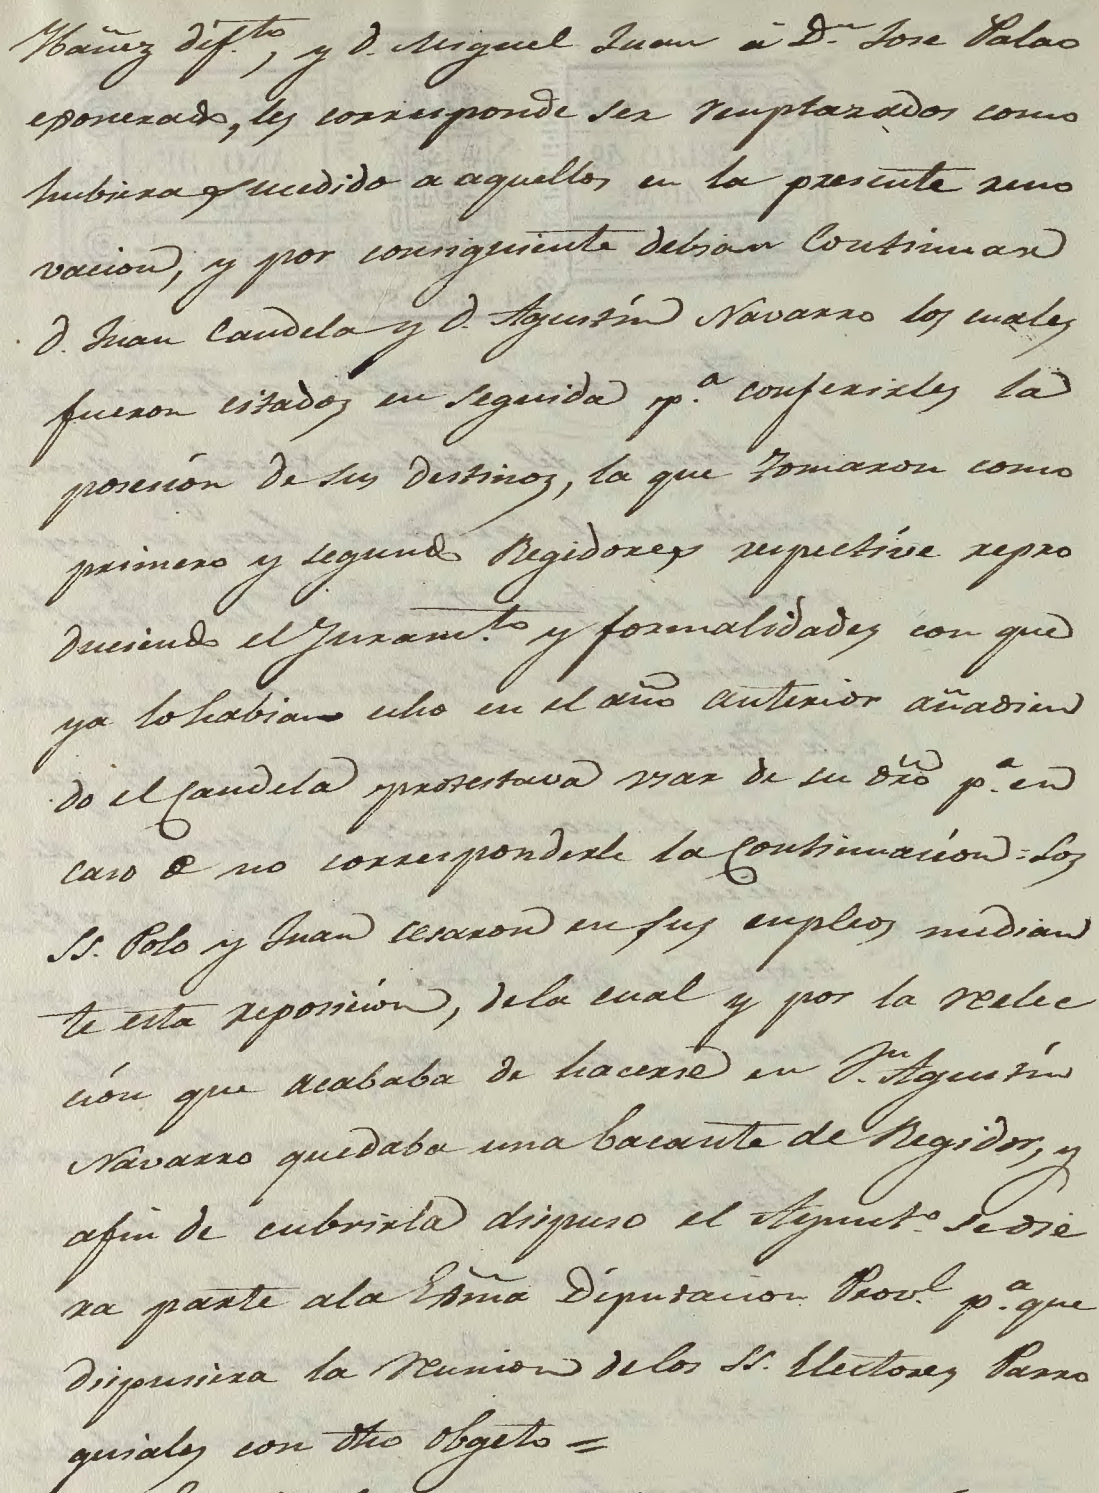 Ybañez dif.to, y d. Miguel Juan á D.n Jose Palao
exonerado, les corresponde ser remplazados como
hubiera sucedido a aquellos en la presente reno
vacion, y por consiguiente debian Continuar
d. Juan Candela y d. Agustín Navarro los cuales
fueron citados en seguida p.a conferirles la
posesión de sus destinos, la que tomaron como
primero y segundo Regidores respectíve repro
duciendo el Juram.to y formalidades con que
ya lo habian echo en el año anterior añadien
do el Candela protestava usar de su dro p.a en
caso de no corresponderle la Continuación = Los
SS. Polo y Juan cesaron en sus empleos median
te esta reposición, dela cual y por la relec
ción que acababa de hacerse en D.n Agustín
Navarro quedaba una bacante de Regidor, y
afin de cubrirla dispuso el Ayunt.o se die
ra parte ala Exma Diputacion Prov.l p.a que
dispusiera la reunion delos SS. Electores Parro
quiales con dho obgeto =